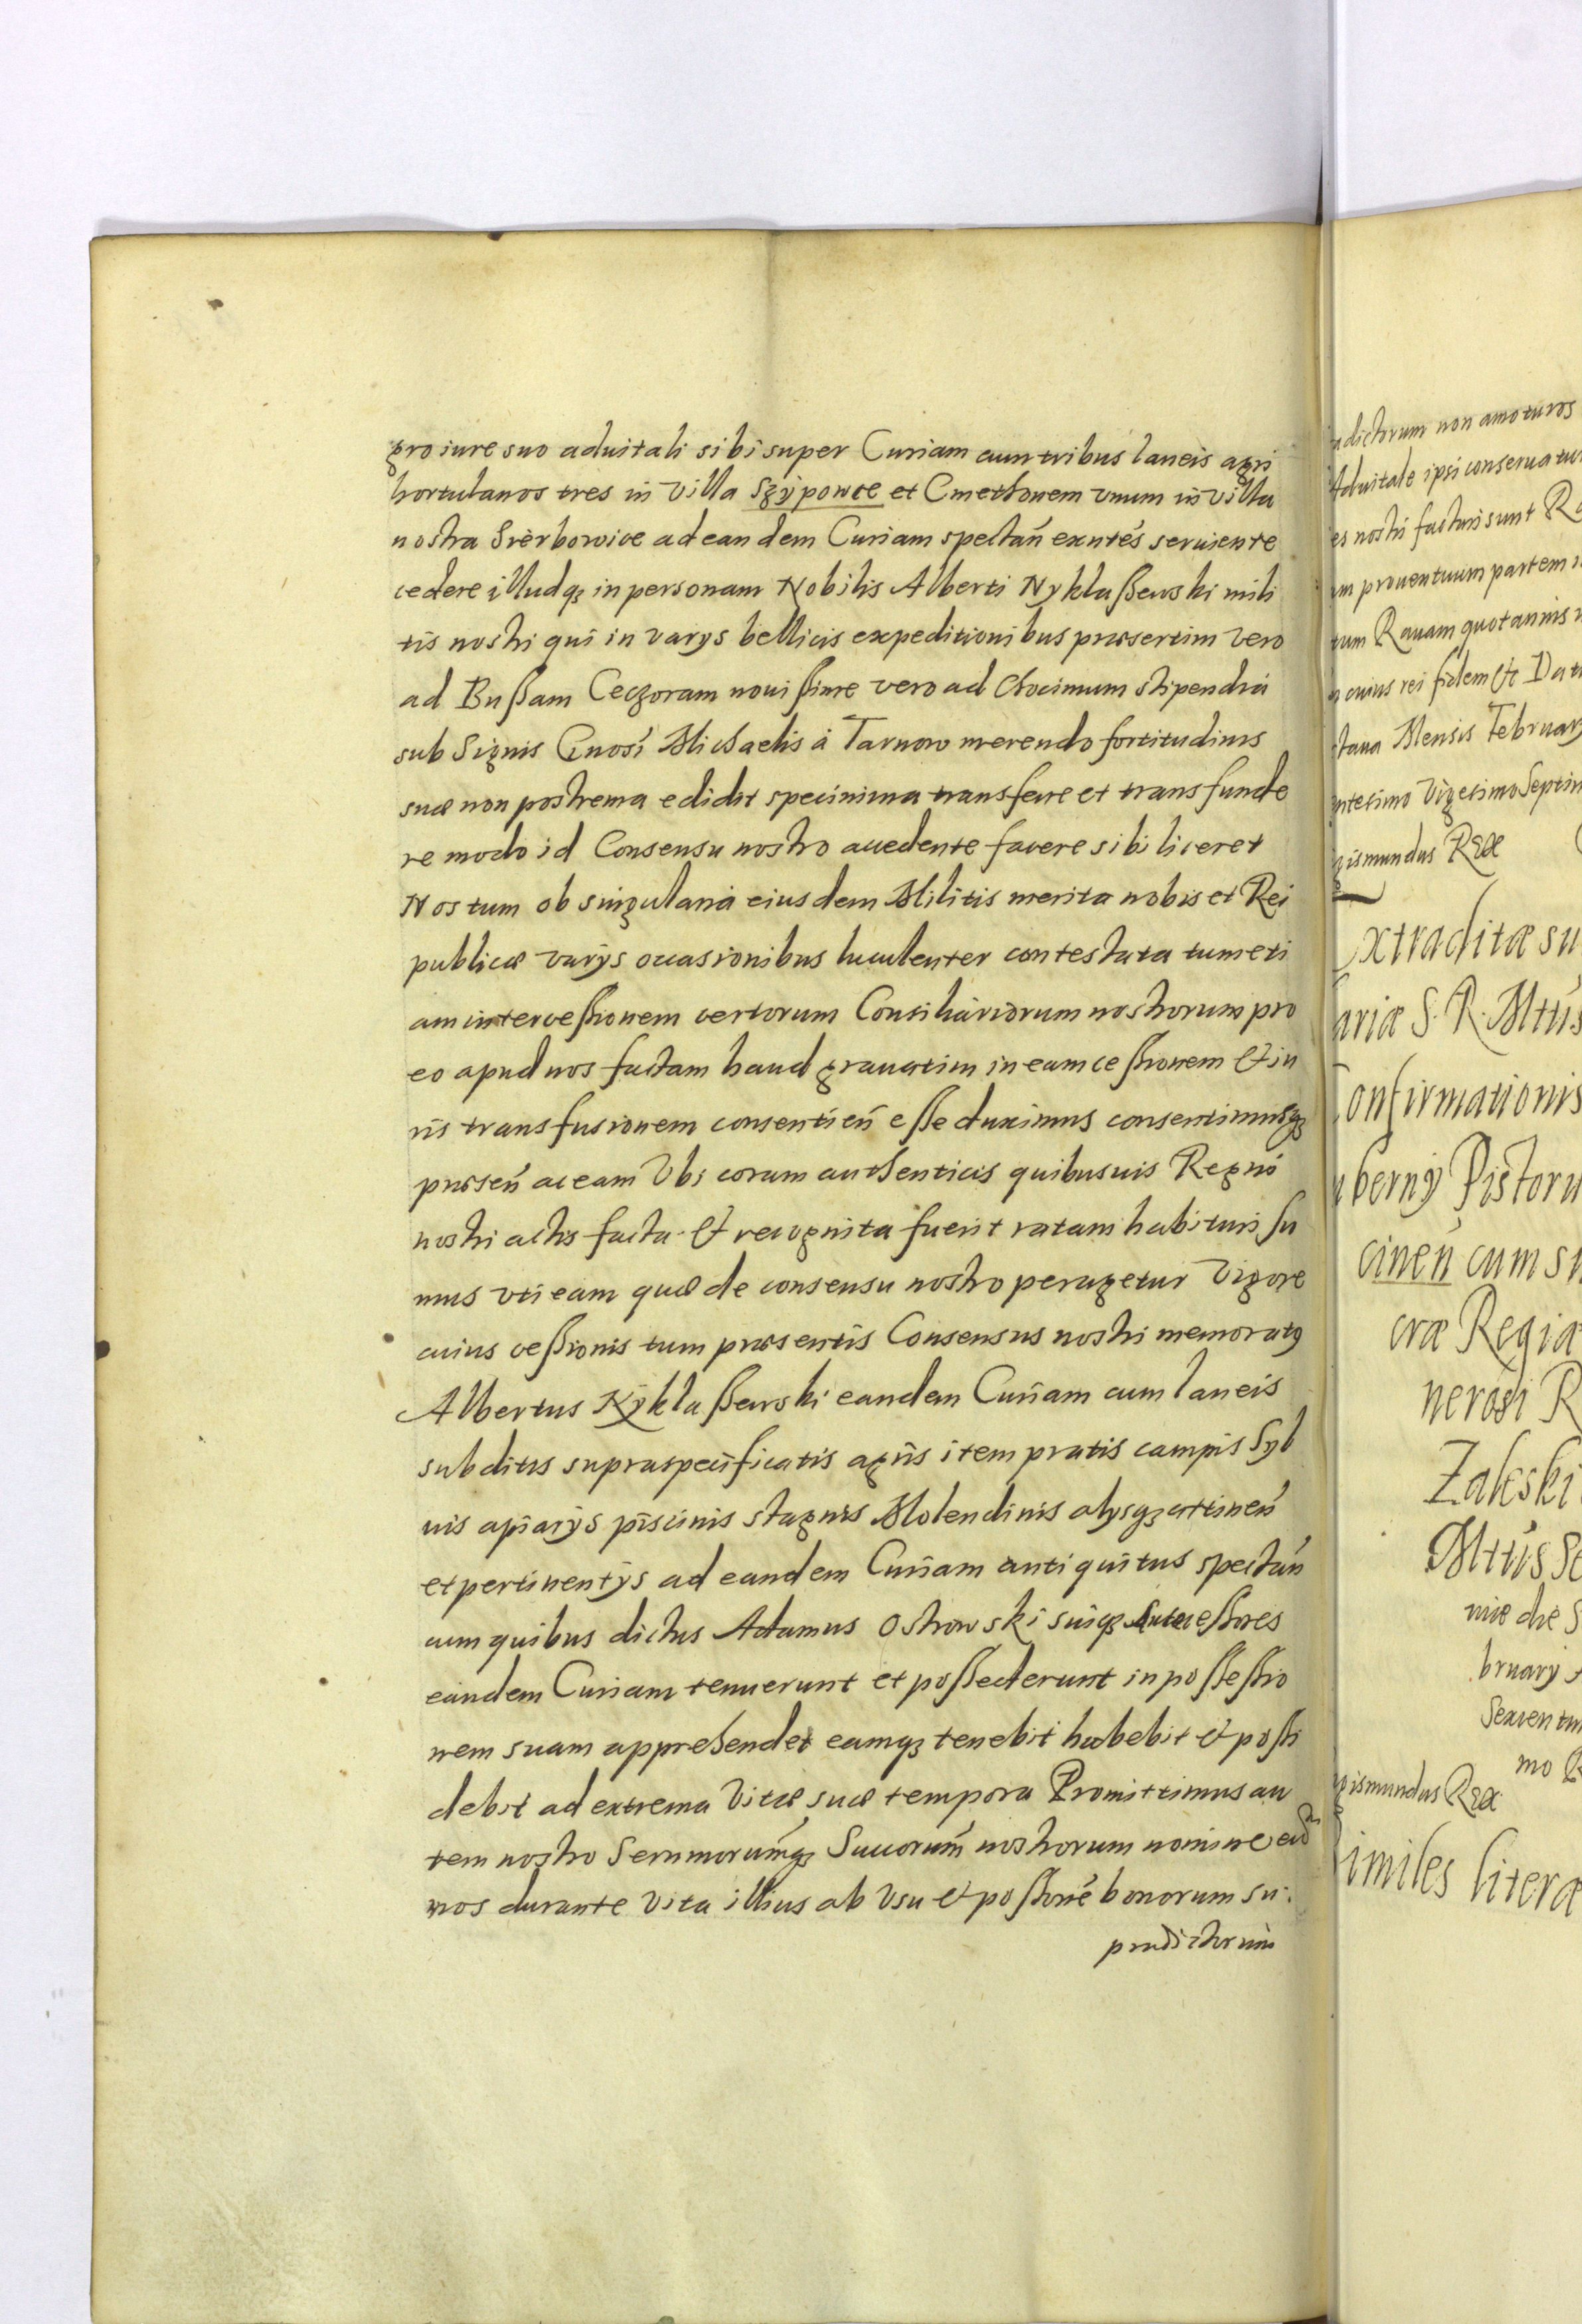 gro iure suo aduitali sibi super Curiam cum tribus laneis agri
hortulanos tres in Villa Szÿpowce et Cmethonem vnum in villa
nostra Srèrbowice ad eandem Curiam spectan̄ exntés seruiente
cedere illudqȝ in personam Nobilis Alberti Nyklaßewski mili
tis nostri qui in varys bellicis expeditionibus præsertim vero
ad Bußam Ceczoram nouißime vero ad Chocimum stipendia
sub Signis Gnosi Michaelis à Tarnow merendo fortitudinis
suæ non postrema edidit specimina transferre et transfunde
re modo id Consensu nostro accedente facere sibi liceret
Nos tum ob singularia eiusdem Militis merita nobis et Rei
publicæ varÿs occasionibus luculenter contestata tum eti
am interceßionem certorum Consiliariorum nostrorum pro
eo apud nos factam haud grauatim in eam ceßionem & iu
ris transfusionem consentien̄ eße duximus consentimusqȝ
præsen̄ ac eam Vbi coram authenticis quibusuis Regni
nostri actis facta & recognita fuerit ratam habituri su
mus vti eam quæ de consensu nostro peragetur Vigore
cuius ceßionis tum præsentis Consensus nostri memoratꝰ
Albertus Nÿklaßewski eandem Curiam cum laneis
subditis supraspecificatis agris item pratis campis Syl
uis apiarÿs piscinis stagnis Molendinis alysqȝ attinen̄
et pertinentÿs ad eandem Curiam antiquitus spectan̄
cum quibus dictus Adamus Ostrowski suiqȝ Anteceßores
eandem Curiam tenuerunt et poßederunt in poßeßio
nem suam apprehendet eamqȝ tenebit habebit & poßi
debit ad extrema Vitæ suæ tempora Promittimus au
tem nostro Sernmorum̄qȝ Succorum̄ nostrorum nomine eūd
nos durante vita illius ab Vsu & poßione bonorum su:
prædictorum
adictorum non amoturos
Aduitale ipsi conseruatur
es nostri facturi sunt
m prouentuum partem
tum Rauam quotannis
cuius rei fidem &c Dat
taua Mensis February
ntesimo Vigesimo Septim
gismundus Rex
xtraditæ su
ariæ S. R. Mtūs
onfirmationis
bernÿ Pistoru
cinen̄ cum su
cræ Regiæ
nerosi R
Zaleski
Mtūs Se
niæ die S
bruary
Sexcentu
mo
gismundus Rex
imiles literæ